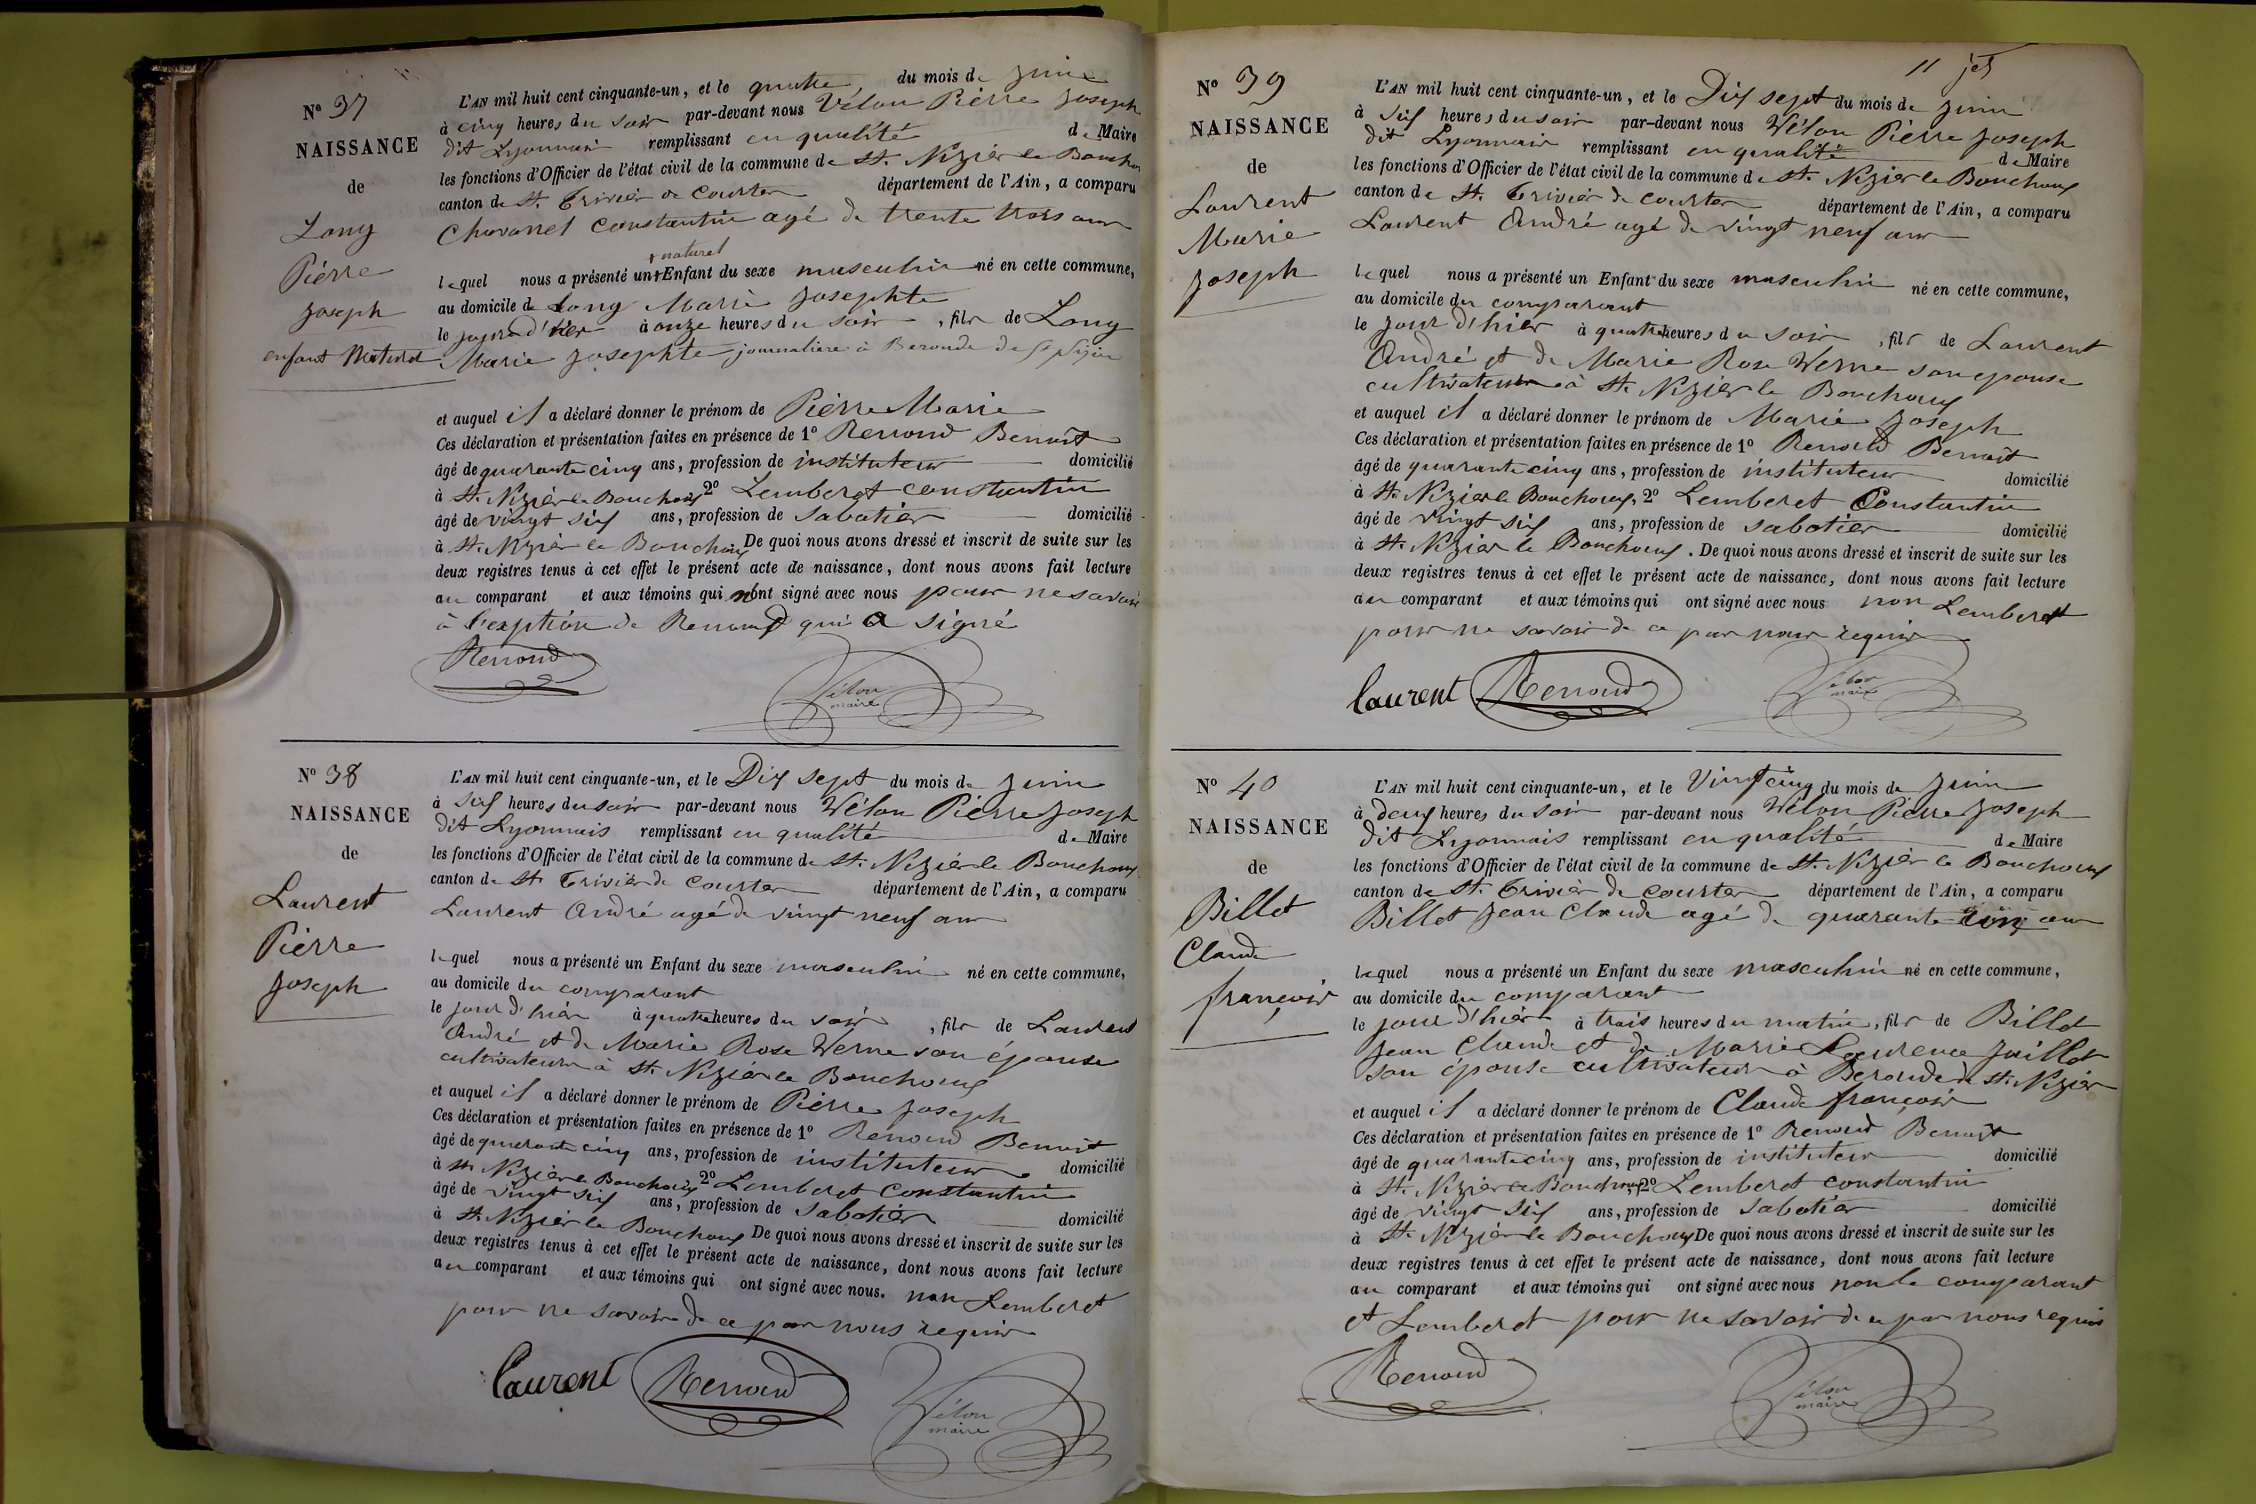 N° 37
NAISSANCE
de
Long
Pierre
Joseph
enfant Naturel
L'AN mil huit cent cinquante-un, et le quatre du mois de Juin
à cinq heures du soir par-devant nous Vélon Pierre Joseph
dit Lyonnais remplissant en qualité de Maire
les fonctions d'Officier de l'état civil de la commune de St. Nizier le Bouchoux
canton de St. Trivier de Courtes département de l'Ain, a comparu
Chavanel Constantin agé de trente trois ans
+ naturel
lequel nous a présenté un + Enfant du sexe masculin né en cette commune,
au domicile de Long Marie Josephte
le jour d'hier à onze heures du soir, fils de Long
Marie Josephte journaliere à Beronde de St Nizier
et auquel il a déclaré donner le prénom de Pierre Marie
Ces déclaration et présentation faites en présence de 1° Renoud Benoît
âgé de quarante cinq ans, profession de instituteur domicilié
à St. Nizier le Bouchoux 2° Lemberet Constantin
âgé de vingt six ans, profession de Sabotier domicilié
à St. Nizier le Bouchoux De quoi nous avons dressé et inscrit de suite sur les
deux registres tenus à cet effet le présent acte de naissance, dont nous avons fait lecture
au comparant et aux témoins qui n'ont signé avec nous pour ne savoir
à l'exeption de Renoud qui a signé
Renoud
Vélon
maire
N° 38
NAISSANCE
de
Laurent
Pierre
Joseph
L'AN mil huit cent cinquante-un, et le Dix sept du mois de Juin
à six heures du soir par-devant nous Vélon Pierre Joseph
dit Lyonnais remplissant en qualité de Maire
les fonctions d'Officier de l'état civil de la commune de St. Nizier le Bouchoux
canton de St Trivier de Courtes département de l'Ain, a comparu
Laurent André agé de vingt neuf ans
lequel nous a présenté un Enfant du sexe masculin né en cette commune,
au domicile du comparant
le jour d'hier à quatre heures du soir, fils de Laurent
André et de Marie Rose Verne son épouse
cultivateurs à St. Nizier le Bouchoux
et auquel il a déclaré donner le prénom de Pierre Joseph
Ces déclaration et présentation faites en présence de 1° Renoud Benoît
âgé de quarante cinq ans, profession de instituteur domicilié
à St Nizier le Bouchoux 2° Lemberet Constantin
âgé de vingt six ans, profession de Sabotier domicilié
à St. Nizier le Bouchoux De quoi nous avons dressé et inscrit de suite sur les
deux registres tenus à cet effet le présent acte de naissance, dont nous avons fait lecture
au comparant et aux témoins qui ont signé avec nous. non Lemberet
pour ne savoir de ce par nous requis
Laurent Renoud
Vélon
maire
11 jet
N° 39
NAISSANCE
de
Laurent
Marie
Joseph
L'AN mil huit cent cinquante-un, et le Dix sept du mois de Juin
à six heures du soir par-devant nous Vélon Pierre Joseph
dit Lyonnais remplissant en qualité de Maire
les fonctions d'Officier de l'état civil de la commune de St. Nizier le Bouchoux
canton de St. Trivier de Courtes département de l'Ain, a comparu
Laurent André agé de vingt neuf ans
lequel nous a présenté un Enfant du sexe masculin né en cette commune,
au domicile du comparant
le jour d'hier à quatre heures du soir, fils de Laurent
André et de Marie Rose Verne son epouse
cultivateurs à St. Nizier le Bouchoux
et auquel il a déclaré donner le prénom de Marie Joseph
Ces déclaration et présentation faites en présence de 1° Renoud Benoît
âgé de quarante cinq ans, profession de instituteur domicilié
à St. Nizier le Bouchoux, 2° Lemberet Constantin
âgé de vingt six ans, profession de Sabotier domicilié
à St. Nizier le Bouchoux. De quoi nous avons dressé et inscrit de suite sur les
deux registres tenus à cet effet le présent acte de naissance, dont nous avons fait lecture
au comparant et aux témoins qui ont signé avec nous non Lemberet
pour ne savoir de ce par nous requis
Laurent Renoud
Vélon
maire
N° 40
NAISSANCE
de
Billet
Claude
françois
L'AN mil huit cent cinquante-un, et le Vingt cinq du mois de Juin
à deux heures du soir par-devant nous Vélon Pierre Joseph
dit Lyonnais remplissant en qualité de Maire
les fonctions d'Officier de l'état civil de la commune de St. Nizier le Bouchoux
canton de St. Trivier de Courtes département de l'Ain, a comparu
Billet Jean Claude agé de quarante cinq ans
lequel nous a présenté un Enfant du sexe masculin né en cette commune,
au domicile du comparant
le jour d'hier à trois heures du matin, fils de Billet
Jean Claude et de Marie Laurence Juillet
son épouse cultivateurs à Beronde de St. Nizier
et auquel il a déclaré donner le prénom de Claude françois
Ces déclaration et présentation faites en présence de 1° Renoud Benoît
âgé de quarante cinq ans, profession de instituteur domicilié
à St. Nizier le Bouchoux, 2° Lemberet Constantin
âgé de vingt six ans, profession de Sabotier domicilié
à St. Nizier le Bouchoux De quoi nous avons dressé et inscrit de suite sur les
deux registres tenus à cet effet le présent acte de naissance, dont nous avons fait lecture
au comparant et aux témoins qui ont signé avec nous non le comparant
et Lemberet pour ne savoir de ce par nous requis
Renoud
Vélon
maire